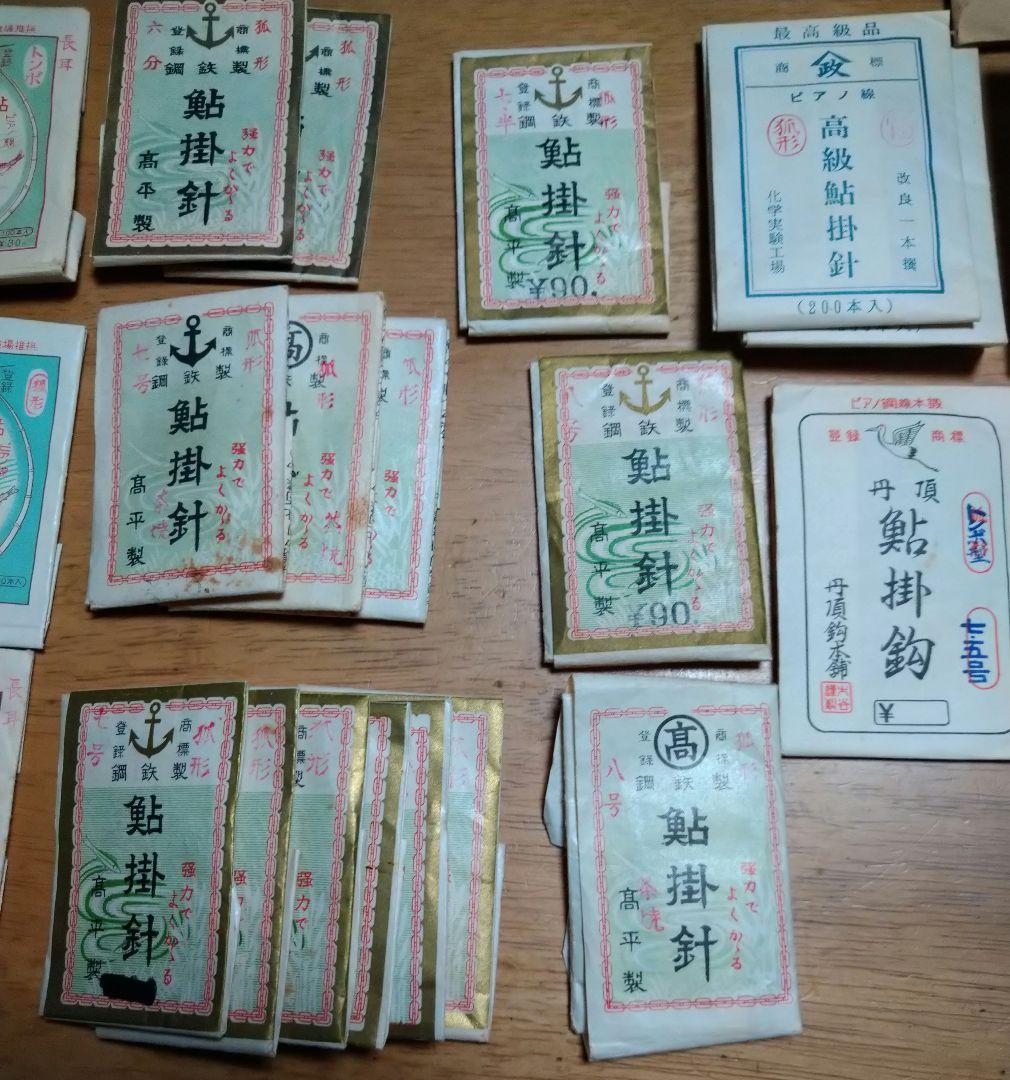 長耳
トンボ
¥30
商標
登録
鋼鉄製
狐形
六分
鮎掛針
強力で
よくかゝる
高平製
狐形
強力で
よくかゝる
商標
登録
鋼鉄製
狐形
七.半
鮎掛針
強力で
よくかゝる
高平製
¥90.
最高級品
商 政 標
ピアノ線
狐形
高級鮎掛針
改良一本撰
化学実験工場
(200本入)
商標
登録
鋼鉄製
狐形
七号
鮎掛針
強力で
よくかゝる
茶焼
高平製
高
狐形
強力で
よくかゝる
狐形
強力で
商標
登録
鋼鉄製
狐形
八号
鮎掛針
強力で
よくかゝる
高平製
¥90
登録 商標
丹頂
鮎掛鈎
七.五号
丹頂鈎本舗
¥
長耳
商標
登録
鋼鉄製
狐形
七号
鮎掛針
強力で
よくかゝる
高平製
狐形
強力で
狐形
強力で
高
商標
登録
鋼鉄製
狐形
八号
鮎掛針
強力で
よくかゝる
茶焼
高平製